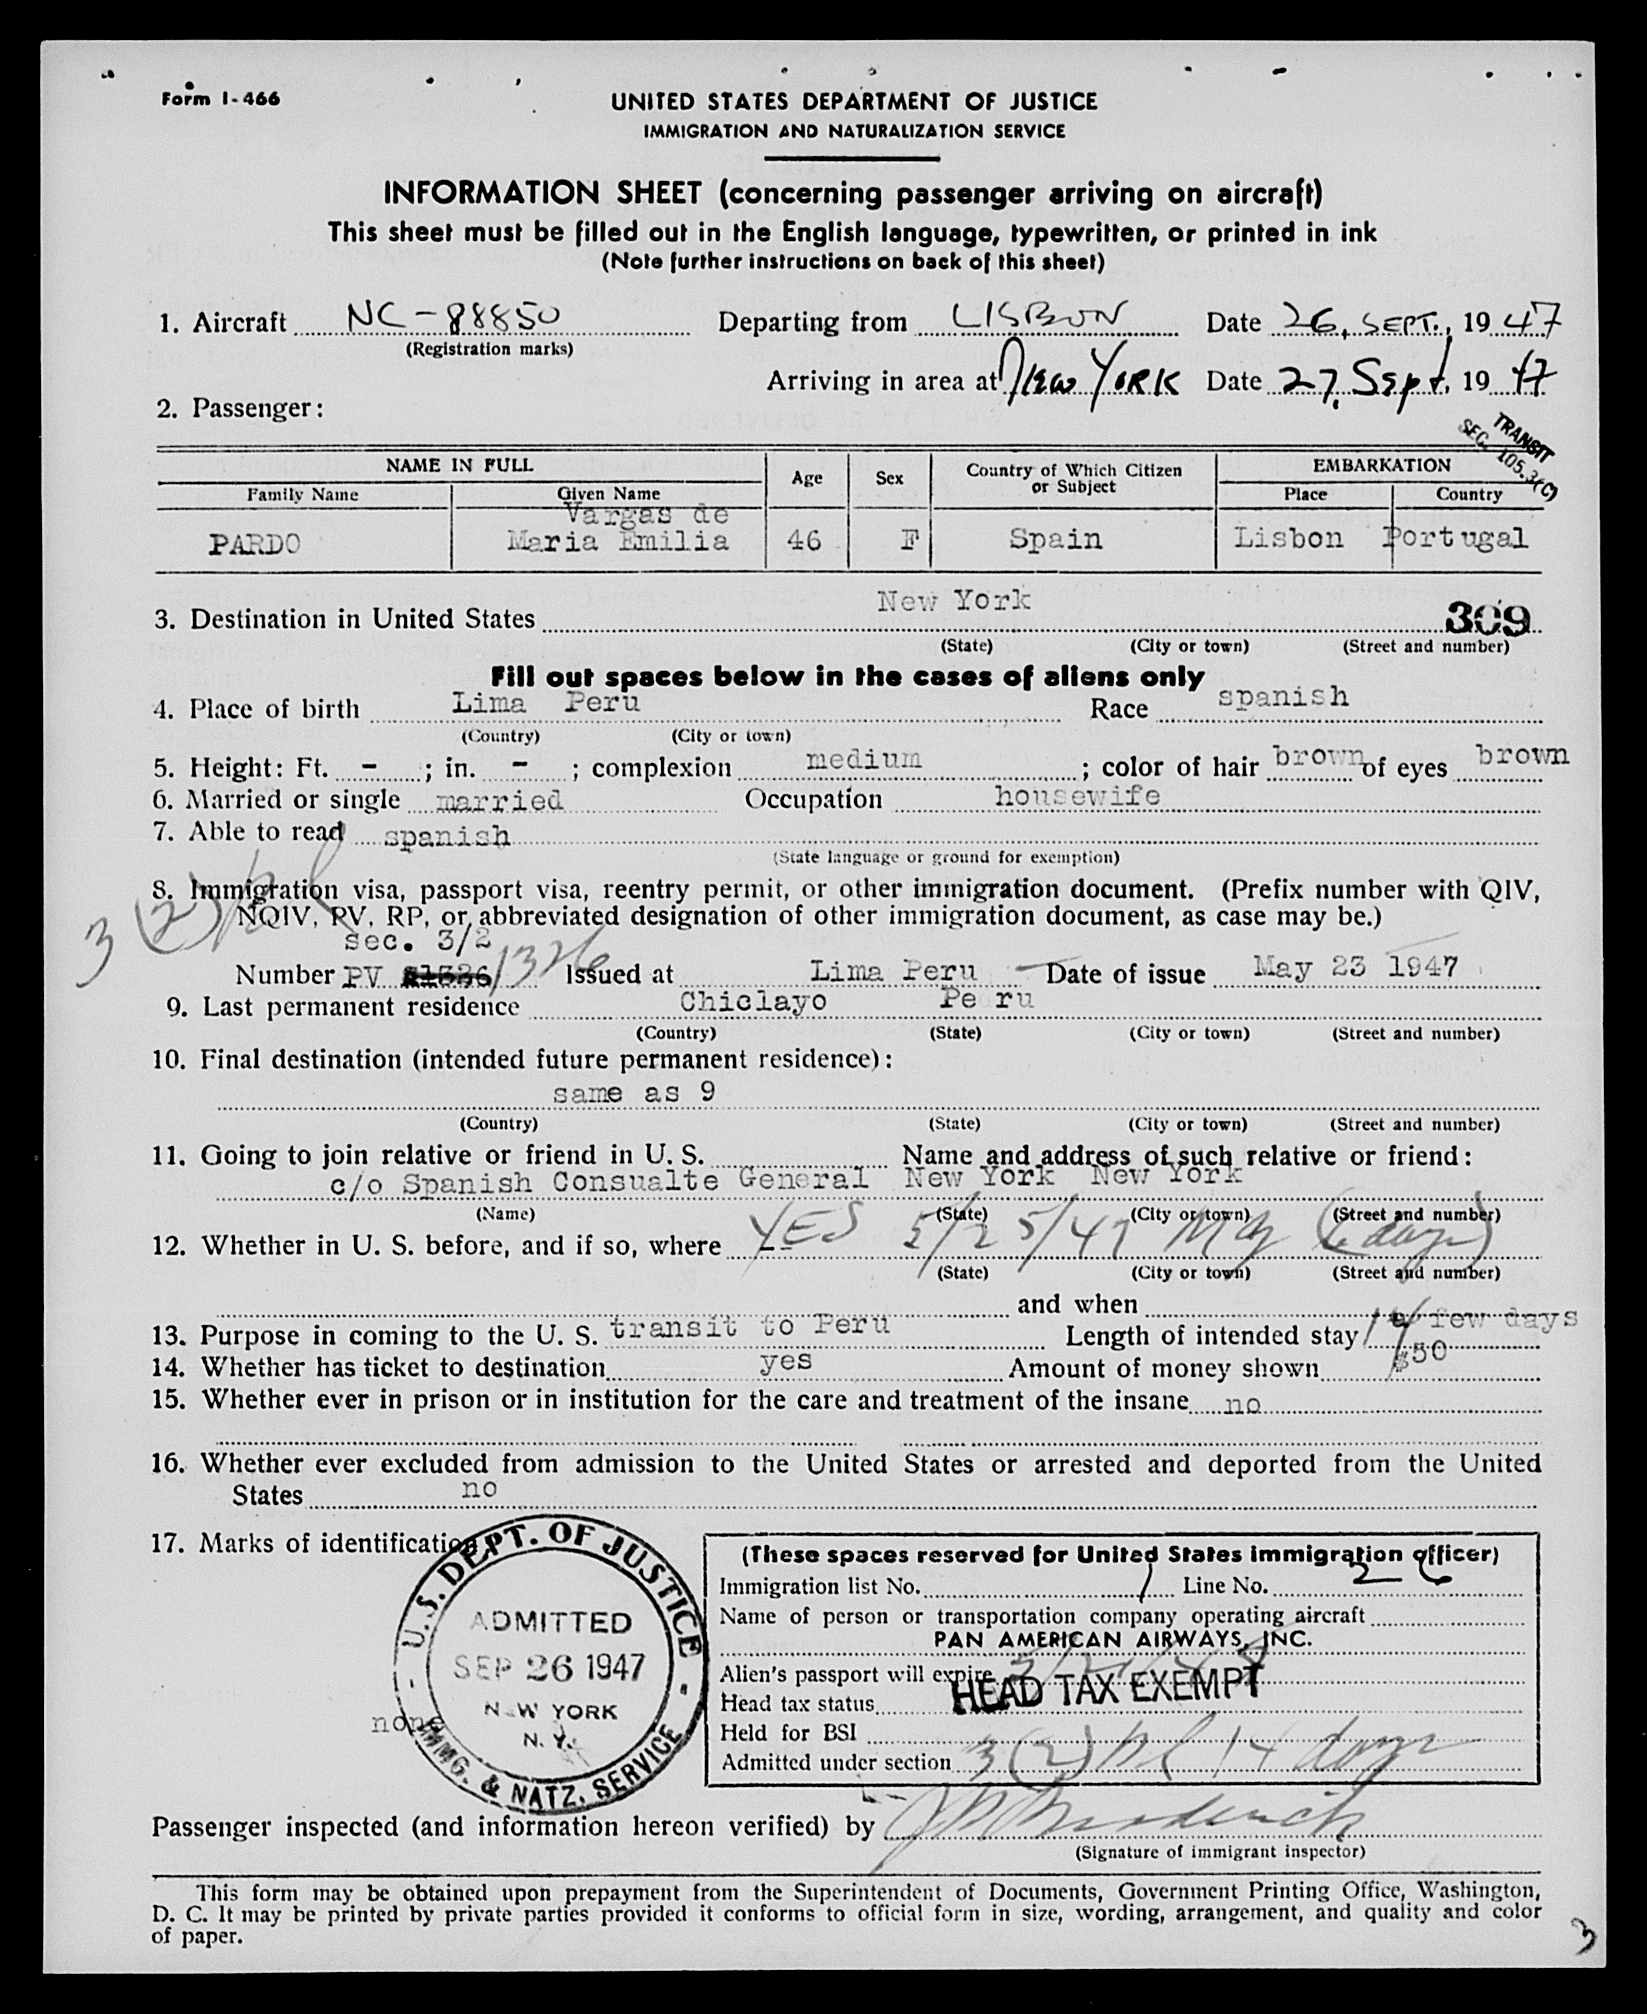 Form I-466
UNITED STATES DEPARTMENT OF JUSTICE
IMMIGRATION AND NATURALIZATION SERVICE
INFORMATION SHEET (concerning passenger arriving on aircraft)
This sheet must be filled out in the English language, typewritten, or printed in ink
(Note further instructions on back of this sheet)
1. Aircraft NC-88850 Departing from LISBON Date 26, SEPT., 1947
(Registration marks)
Arriving in area at New YORK Date 27, Sept, 1947
2. Passenger:
TRANSIT
SEC. 105.3(C)
NAME IN FULL Age Sex Country of Which Citizen or Subject EMBARKATION
Family Name Given Name Place Country
Vargas de
PARDO Maria Emilia 46 F Spain Lisbon Portugal
3. Destination in United States New York 309
(State) (City or town) (Street and number)
Fill out spaces below in the cases of aliens only
4. Place of birth Lima Peru Race spanish
(Country) (City or town)
5. Height: Ft. - ; in. - ; complexion medium ; color of hair brown of eyes brown
6. Married or single married Occupation housewife
7. Able to read spanish
(State language or ground for exemption)
8. Immigration visa, passport visa, reentry permit, or other immigration document. (Prefix number with QIV,
3 (2) NQIV, PV, RP, or abbreviated designation of other immigration document, as case may be.)
sec. 3/2
Number PV 1326 Issued at Lima Peru Date of issue May 23 1947
9. Last permanent residence Chiclayo Pe ru
(Country) (State) (City or town) (Street and number)
10. Final destination (intended future permanent residence):
same as 9
(Country) (State) (City or town) (Street and number)
11. Going to join relative or friend in U. S. Name and address of such relative or friend:
c/o Spanish Consualte General New York New York
(Name) (State) (City or town) (Street and number)
12. Whether in U. S. before, and if so, where YES 5/25/47 NY days)
(State) (City or town) (Street and number)
and when
13. Purpose in coming to the U. S. transit to Peru Length of intended stay 14 a few days
14. Whether has ticket to destination yes Amount of money shown $50
15. Whether ever in prison or in institution for the care and treatment of the insane no
16. Whether ever excluded from admission to the United States or arrested and deported from the United
States no
17. Marks of identification none
U.S. DEPT. OF JUSTICE
ADMITTED
SEP 26 1947
NEW YORK
N. Y.
IMMG. & NATZ. SERVICE
(These spaces reserved for United States immigration officer)
Immigration list No. 1 Line No. 26
Name of person or transportation company operating aircraft
PAN AMERICAN AIRWAYS, INC.
Alien's passport will expire
Head tax status HEAD TAX EXEMPT
Held for BSI
Admitted under section 3 (2) 14 days
Passenger inspected (and information hereon verified) by
(Signature of immigrant inspector)
This form may be obtained upon prepayment from the Superintendent of Documents, Government Printing Office, Washington,
D. C. It may be printed by private parties provided it conforms to official form in size, wording, arrangement, and quality and color
of paper.
3